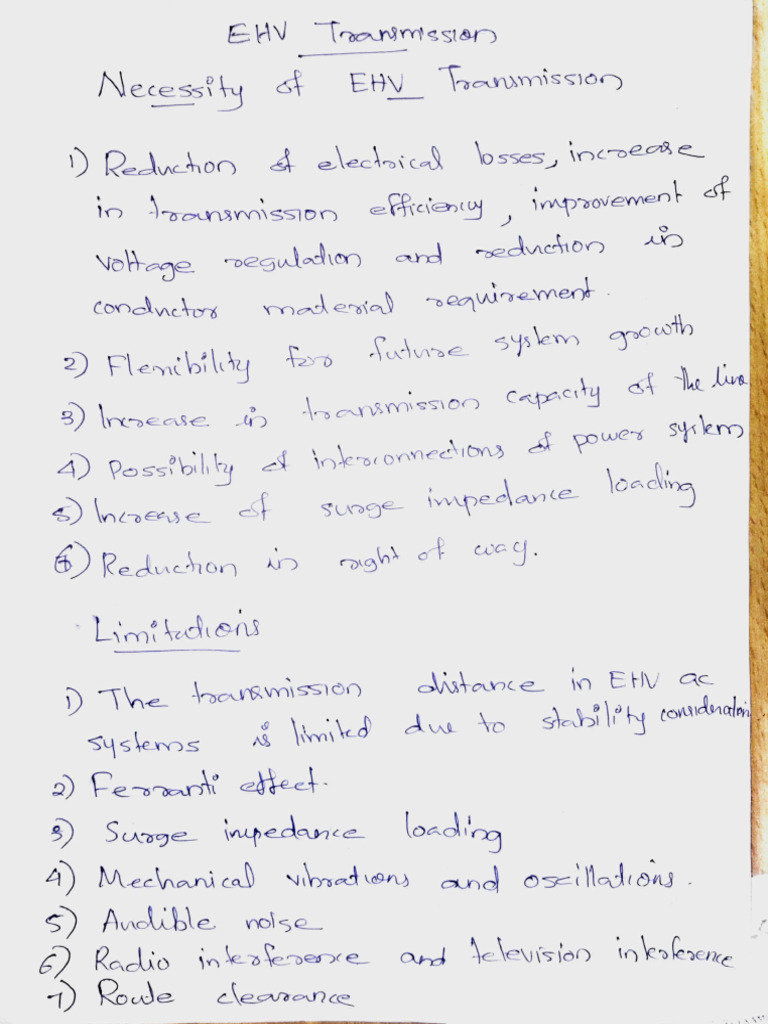 EHV Transmission
Necessity of EHV Transmission
1) Reduction of electrical losses, increase
in transmission efficiency, improvement of
voltage regulation and reduction in
conductor material requirement.
2) Flexibility for future system growth
3) Increase in transmission capacity of the line
4) Possibility of interconnections of power system
5) Increase of surge impedance loading
6) Reduction in right of way.
Limitations
1) The transmission distance in EHV ac
systems is limited due to stability consideration
2) Ferranti effect.
3) Surge impedance loading
4) Mechanical vibrations and oscillations.
5) Audible noise
6) Radio interference and television interference
7) Route clearance